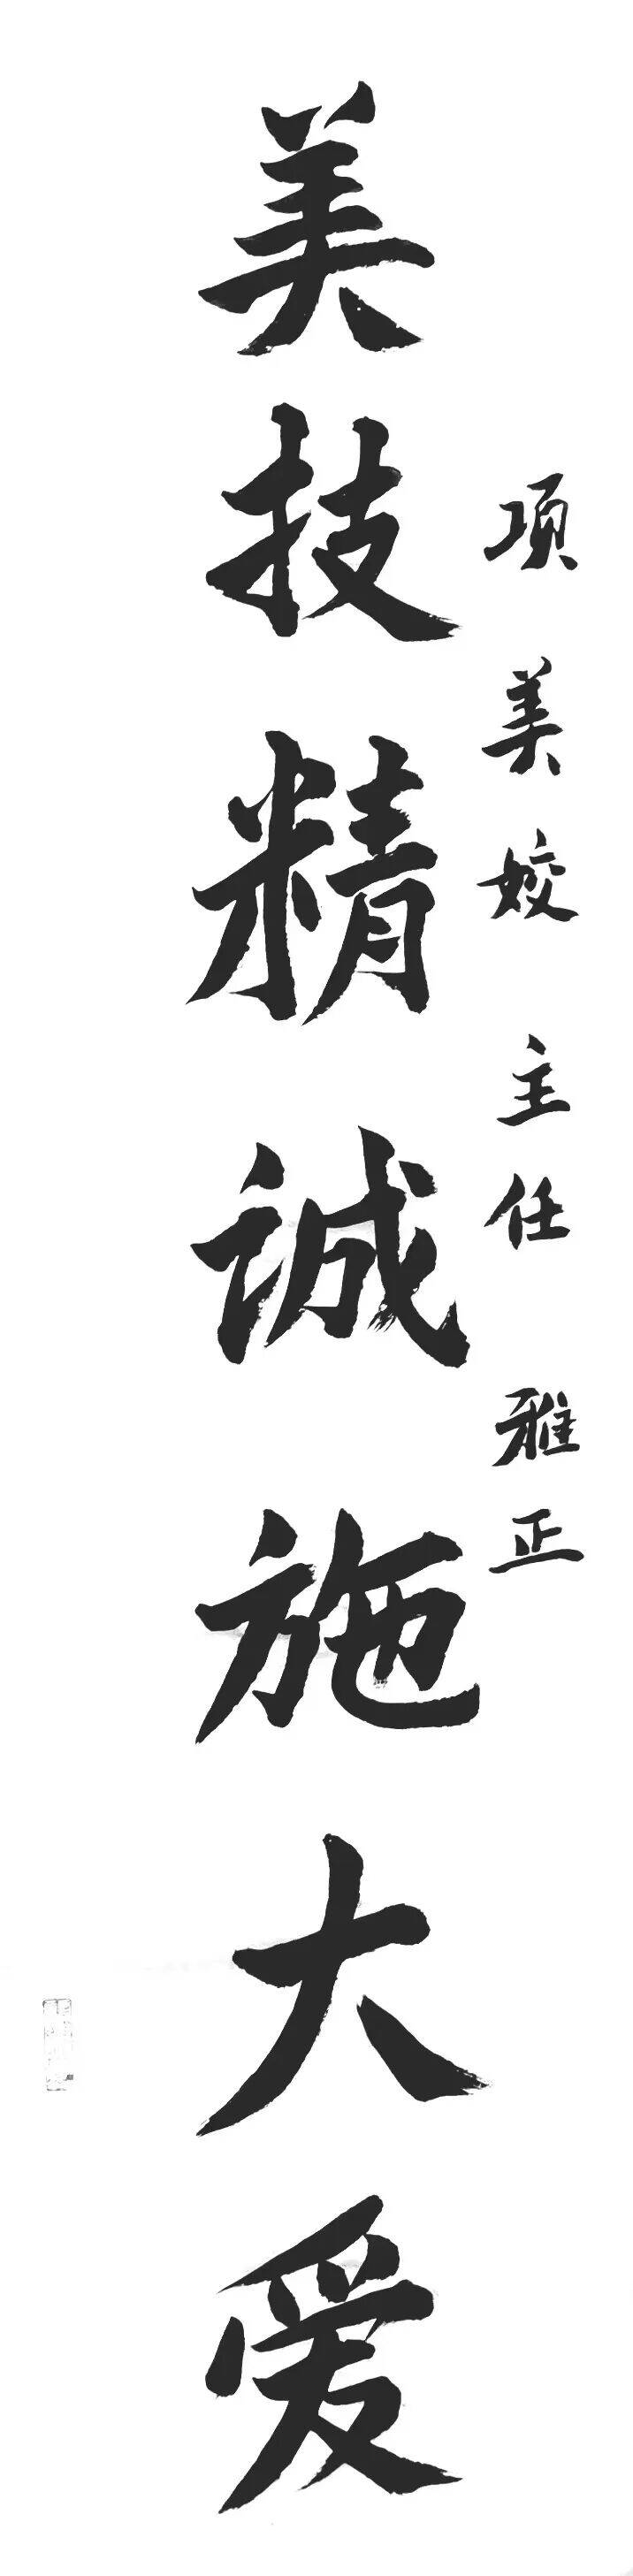 项美姣主任雅正
美技精诚施大爱